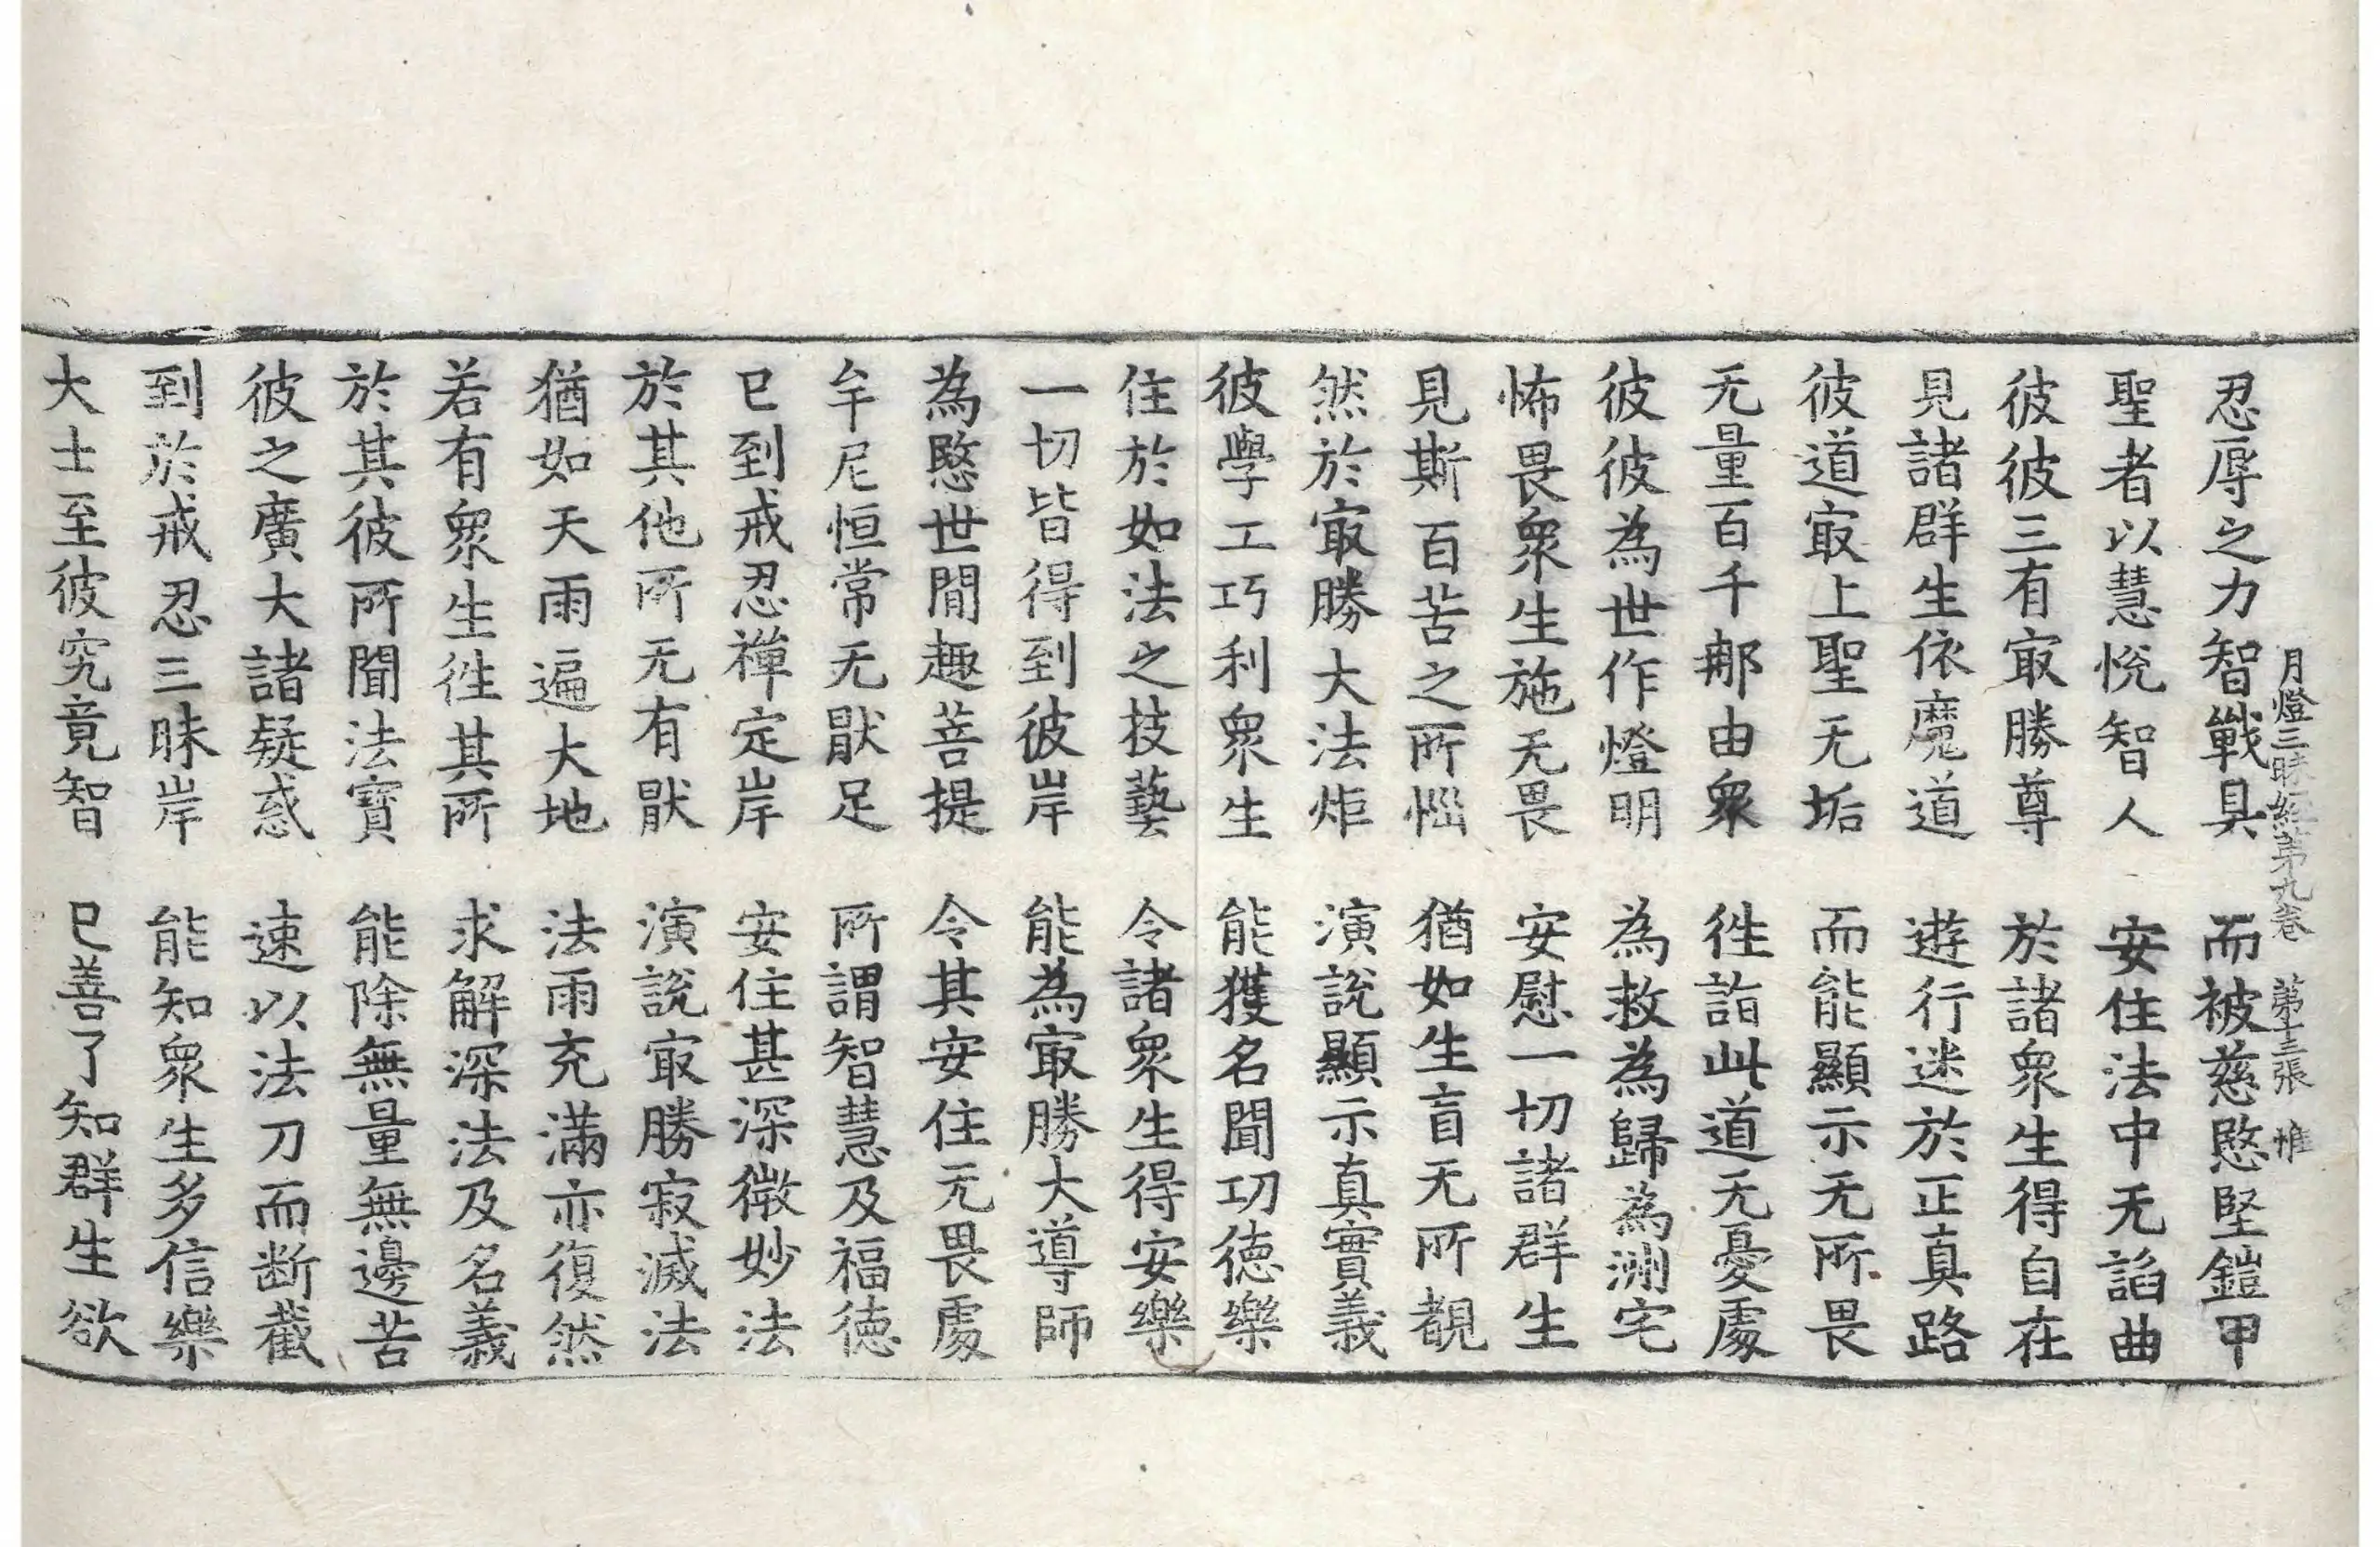 月燈三昧經第九卷 第十三張 堆
忍辱之力智戰具 而被慈愍堅鎧甲
聖者以慧悅智人 安住法中无諂曲
彼彼三有㝡勝尊 於諸衆生得自在
見諸群生依魔道 遊行迷於正真路
彼道㝡上聖无垢 而能顯示无所畏
无量百千那由衆 徃詣此道无憂處
彼彼為世作燈明 為救為歸為洲宅
怖畏衆生施无畏 安慰一切諸群生
見斯百苦之所惱 猶如生盲无所覩
然於㝡勝大法炬 演說顯示真實義
彼學工巧利衆生 能獲名聞功德樂
住於如法之技藝 令諸衆生得安樂
一切皆得到彼岸 能為㝡勝大導師
為愍世間趣菩提 令其安住无畏處
牟尼恒常无猒足 所謂智慧及福德
已到戒忍禪定岸 安住甚深微妙法
於其他所无有猒 演說㝡勝寂滅法
猶如天雨遍大地 法雨充滿亦復然
若有衆生徃其所 求解深法及名義
於其彼所聞法寶 能除無量無邊苦
彼之廣大諸疑惑 速以法刀而断截
到於戒忍三昧岸 能知衆生多信樂
大士至彼究竟智 已善了知群生欲